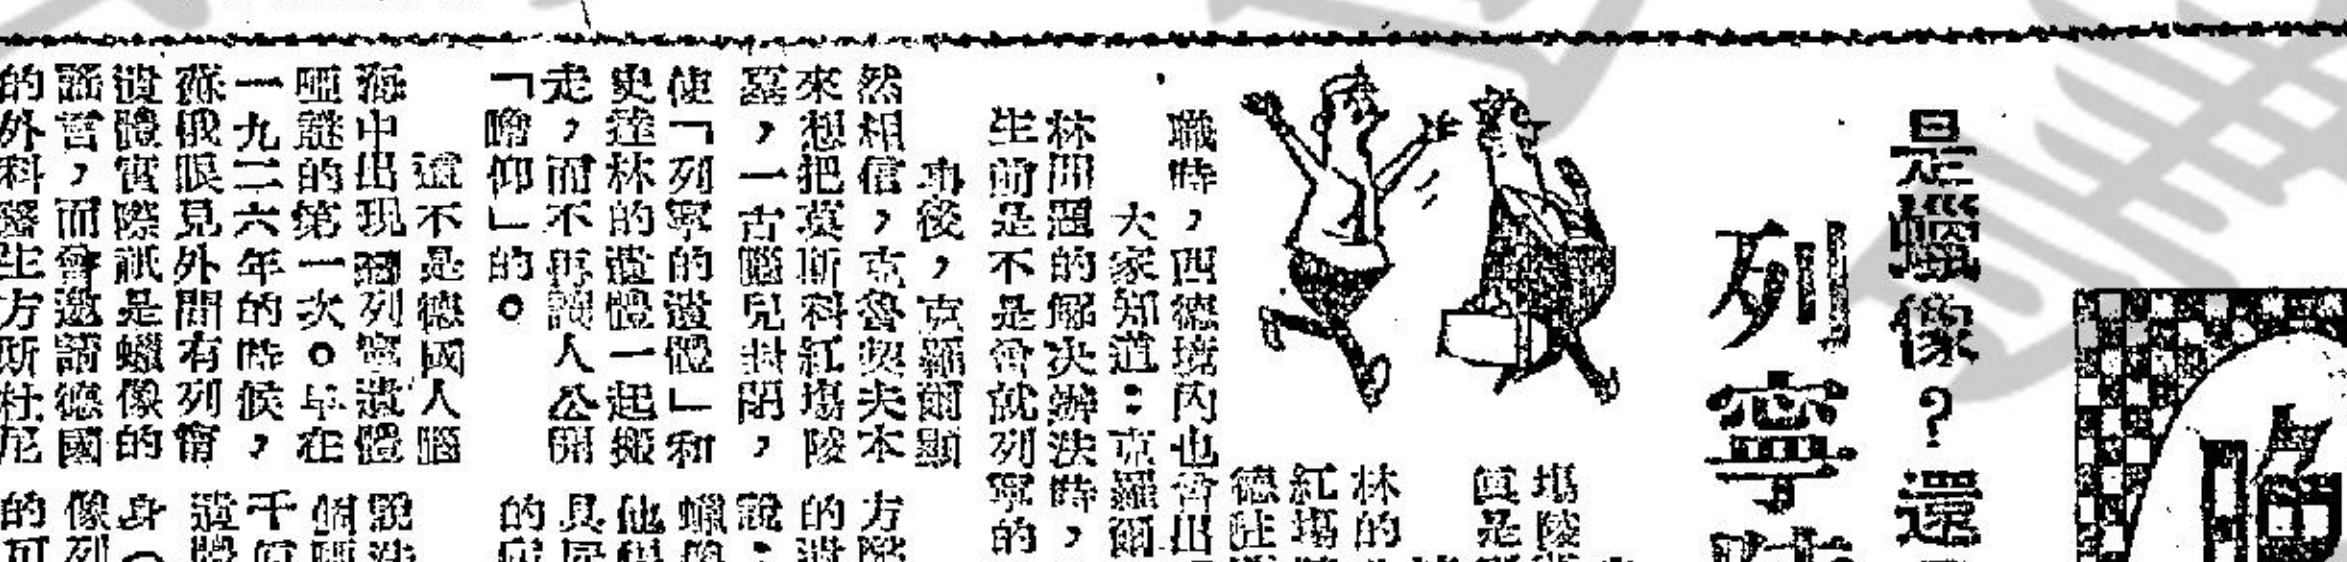 是蠟像？還
列寧
塲陵
眞是
林的
紅塲
德駐
職時，西德境內也曾出
大家知道：克羅爾
林問題的解决辦法時，
生前是不是會就列寧的
事後，克羅爾顯
然相信，克魯契夫本
來想把莫斯科紅塲陵
墓，一古腦兒封閉，
使「列寧的遺體」和
史達林的遺體一起搬
走，而不再讓人公開
「瞻仰」的。
這不是德國人腦
海中出現列寧遺體
啞謎的第一次。早在
一九二六年的時候，
蘇俄眼見外間有列甯
遺體實際祇是蠟像的
謠言，而會邀請德國
的外科醫生方斯杜尼
方
的遺
說：
蠟像
他
具
的
說法
個
千
遺體
身
像列
的可